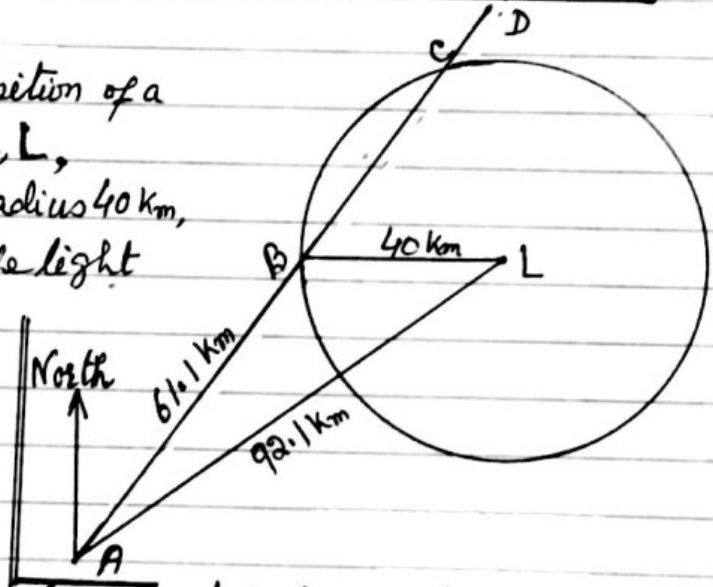 D
C
sition of a
, L,
adius 40 km,
e light
B
40 km
L
North
61.1 km
92.1 km
A